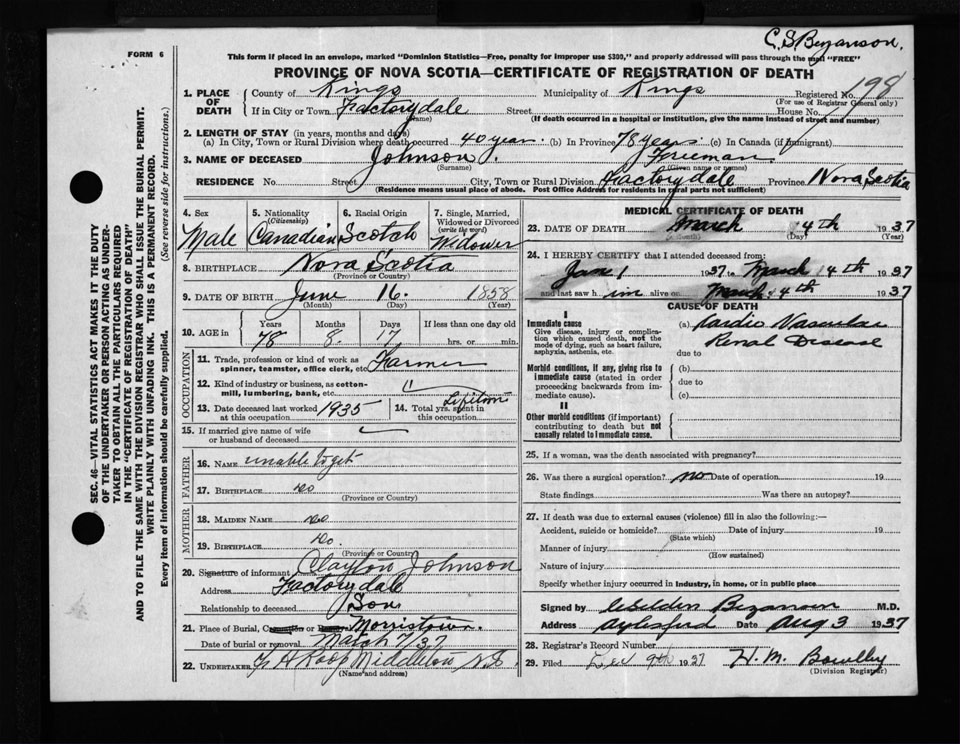 C. S. Bezanson.
FORM 6
This form if placed in an envelope, marked "Dominion Statistics—Free, penalty for improper use $300," and properly addressed will pass through the mail "FREE"
PROVINCE OF NOVA SCOTIA—CERTIFICATE OF REGISTRATION OF DEATH
198
1. PLACE OF DEATH
County of Kings Municipality of Kings Registered No.
(For use of Registrar General only)
If in City or Town Factorydale Street House No.
(Name) (If death occurred in a hospital or institution, give the name instead of street and number)
2. LENGTH OF STAY (in years, months and days)
(a) In City, Town or Rural Division where death occurred 40 years. (b) In Province 78 years (c) In Canada (if immigrant)
3. NAME OF DECEASED Johnson, Freeman
(Surname) (Given name or names)
RESIDENCE No. Street City, Town or Rural Division Factorydale Province Nova Scotia
(Residence means usual place of abode. Post Office Address for residents in rural parts not sufficient)
4. Sex
Male
5. Nationality
(Citizenship)
Canadian
6. Racial Origin
Scotch
7. Single, Married, Widowed or Divorced
(write the word)
Widower
8. BIRTHPLACE Nova Scotia
(Province or Country)
9. DATE OF BIRTH June 16. 1858
(Month) (Day) (Year)
10. AGE in
Years Months Days If less than one day old
78 8. 17 hrs. or min.
OCCUPATION
11. Trade, profession or kind of work as spinner, teamster, office clerk, etc. Farmer
12. Kind of industry or business, as cotton-mill, lumbering, bank, etc.
13. Date deceased last worked at this occupation 1935
14. Total yrs. spent in this occupation. Lifetime
15. If married give name of wife or husband of deceased
FATHER
16. NAME unable to get
17. BIRTHPLACE do
(Province or Country)
MOTHER
18. MAIDEN NAME do
19. BIRTHPLACE Do.
(Province or Country)
20. Signature of informant Clayton Johnson
Address Factorydale
Relationship to deceased Son
21. Place of Burial, Cremation or Removal Morristown.
Date of burial or removal March 7/37
22. UNDERTAKER Roop Middleton NS
(Name and address)
MEDICAL CERTIFICATE OF DEATH
23. DATE OF DEATH March 4th 1937
(Month) (Day) (Year)
24. I HEREBY CERTIFY that I attended deceased from:
June 1 1937 to March 4th 1937
and last saw him alive on March 4th 1937
CAUSE OF DEATH
I
Immediate cause
Give disease, injury or complication which caused death, not the mode of dying, such as heart failure, asphyxia, asthenia, etc.
(a) Cardio Vascular
Renal Disease
due to
Morbid conditions, if any, giving rise to immediate cause (stated in order proceeding backwards from immediate cause).
(b)
due to
(c)
II
Other morbid conditions (if important) contributing to death but not causally related to immediate cause.
25. If a woman, was the death associated with pregnancy?
26. Was there a surgical operation? no Date of operation 19
State findings Was there an autopsy?
27. If death was due to external causes (violence) fill in also the following:—
Accident, suicide or homicide? Date of injury 19
(State which)
Manner of injury
(How sustained)
Nature of injury
Specify whether injury occurred in industry, in home, or in public place
Signed by Bezanson M.D.
Address Aylesford Date Aug 3 1937
28. Registrar's Record Number
29. Filed Dec 9th 1937 H. M.
(Division Registrar)
SEC. 46—VITAL STATISTICS ACT MAKES IT THE DUTY
OF THE UNDERTAKER OR PERSON ACTING AS UNDER-
TAKER TO OBTAIN ALL THE PARTICULARS REQUIRED
IN THE "CERTIFICATE OF REGISTRATION OF DEATH"
AND TO FILE THE SAME WITH THE DIVISION REGISTRAR WHO SHALL ISSUE THE BURIAL PERMIT.
WRITE PLAINLY WITH UNFADING INK. THIS IS A PERMANENT RECORD.
Every item of information should be carefully supplied. (See reverse side for instructions.)